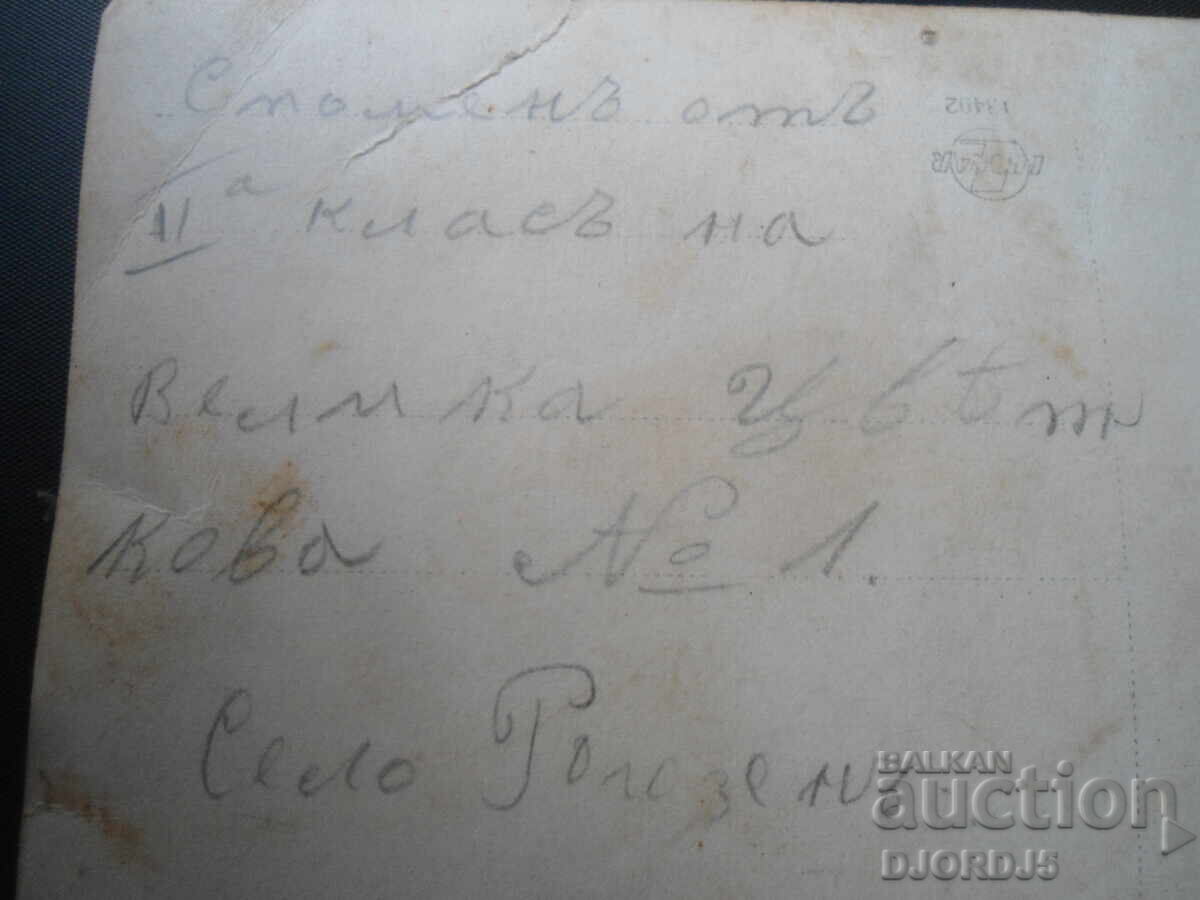 Споменъ отъ
IIа класъ на
Велика Цвѣт
кова № 1.
Село Рогозенъ
13402
BALKAN
auction
DJORDJ5